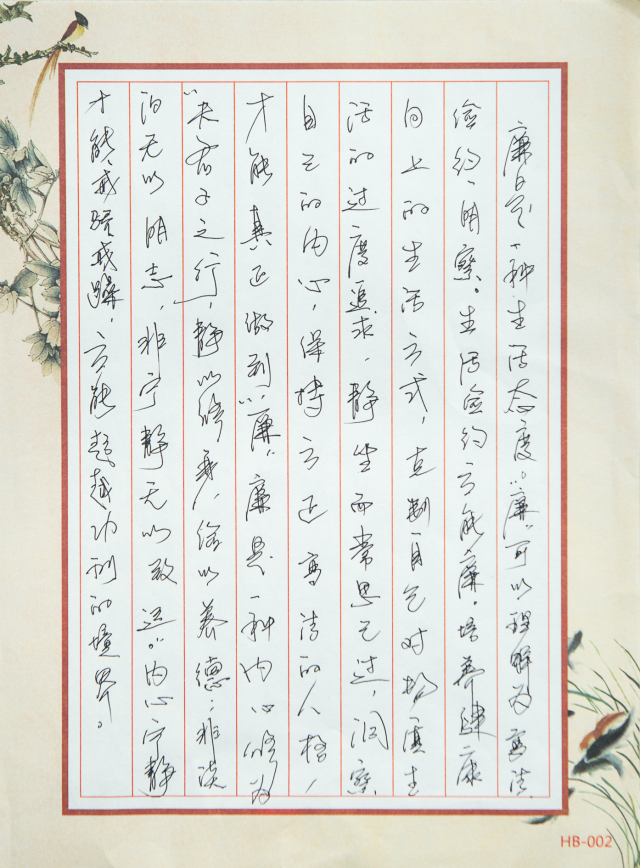 廉是一种生活态度。“廉”可以理解为高洁、
俭约、明察。生活俭约方能廉。培养健康
向上的生活方式，克制自己对物质生
活的过度追求，静坐而常思己过，洞察
自己的内心，保持方正高洁的人格，
才能真正做到“廉”。廉是一种内心修为
“夫君子之行，静以修身，俭以养德；非淡
泊无以明志，非宁静无以致远。”内心宁静
才能戒骄戒躁，方能超越功利的境界。
HB-002